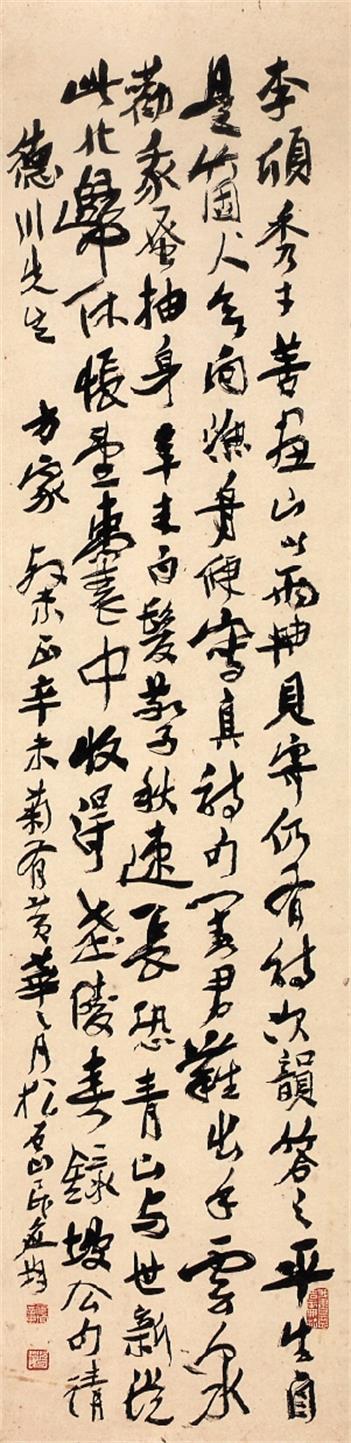 李頎秀才善畫山以兩軸見寄仍有詩次韻答之平生自
是箇人欲向漁舟便寫真詩句對君難出手雲泉
勸我蚤抽身年來白髮驚秋速長恐青山与世新從
此北歸休悵望囊中收得武陵春錄坡公句請
德川先生 方家 正辛未菊有黃華之月松石山民